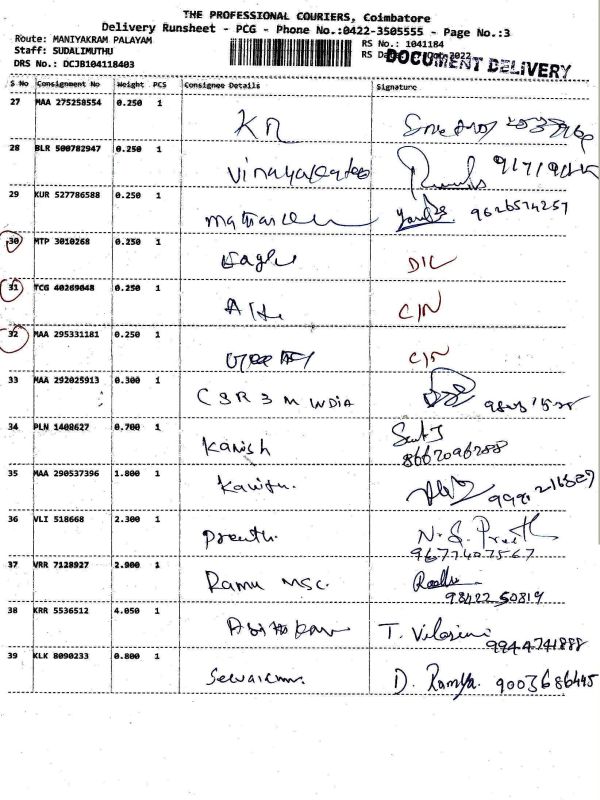 THE PROFESSIONAL COURIERS, Coimbatore
Delivery Runsheet - PCG - Phone No.:0422-3505555 - Page No.:3
Route: MANIYAKRAM PALAYAM
RS No.: 1041184
Staff: SUDALIMUTHU
RS Da Oct 2022
DOCUMENT DELIVERY
DRS No.: DCJB104118403
S No Consignment No Weight PCS Consignee Details Signature
27 MAA 275258554 0.250 1 KN
28 BLR 500782947 0.250 1
29 KUR 527786588 0.250 1 9626574257
30 MTP 3010268 0.250 1 Eagle D/L
31 TCG 40269048 0.250 1 C/N
32 MAA 295331181 0.250 1 C/N
33 MAA 292025913 0.300 1 CSR 3M INDIA
34 PLN 1408627 0.700 1 Kanish
8662096288
35 MAA 290537396 1.800 1
36 VLI 518668 2.300 1 Preethi N. S. Preeth
9677407567
37 VRR 7128927 2.900 1 Ramu MSC.
98422 50819
38 KRR 5536512 4.050 1 T. Vilasini
9944741888
39 KLK 8090233 0.800 1 Selvakumar D. Ramya. 9003686445